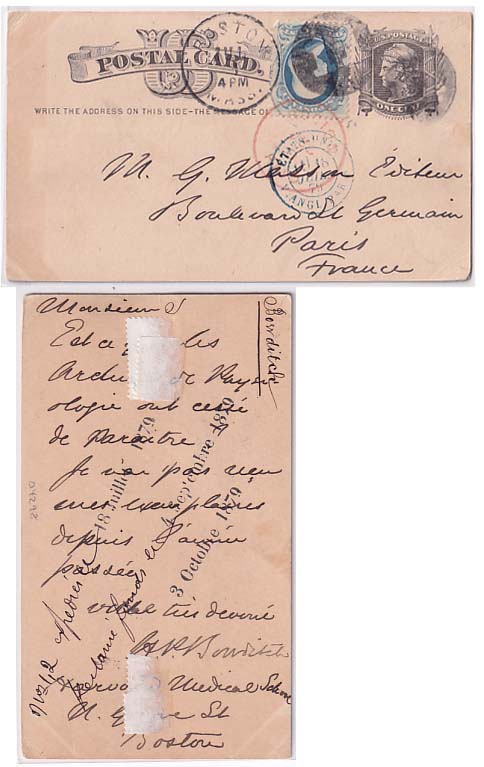 POSTAL CARD.
BOSTON
JUL
4 PM
MASS.
U.S. POSTAGE
ONE CENT
WRITE THE ADDRESS ON THIS SIDE–THE MESSAGE O
M. G. Masson Éditeur
Boulevard St Germain
Paris
France
Monsieur
Bowditch
Est ce les
Archi de Physi
ologie ont cessé
de paraître
Je n'ai pas reçu
mes exemplaires
depuis l'année
passée
18 Juillet 1879
4 Septembre 1879
3 Octobre 1879
votre très dévoué
H.P. Bowditch
Harvard Medical School
N. Grove St
Boston